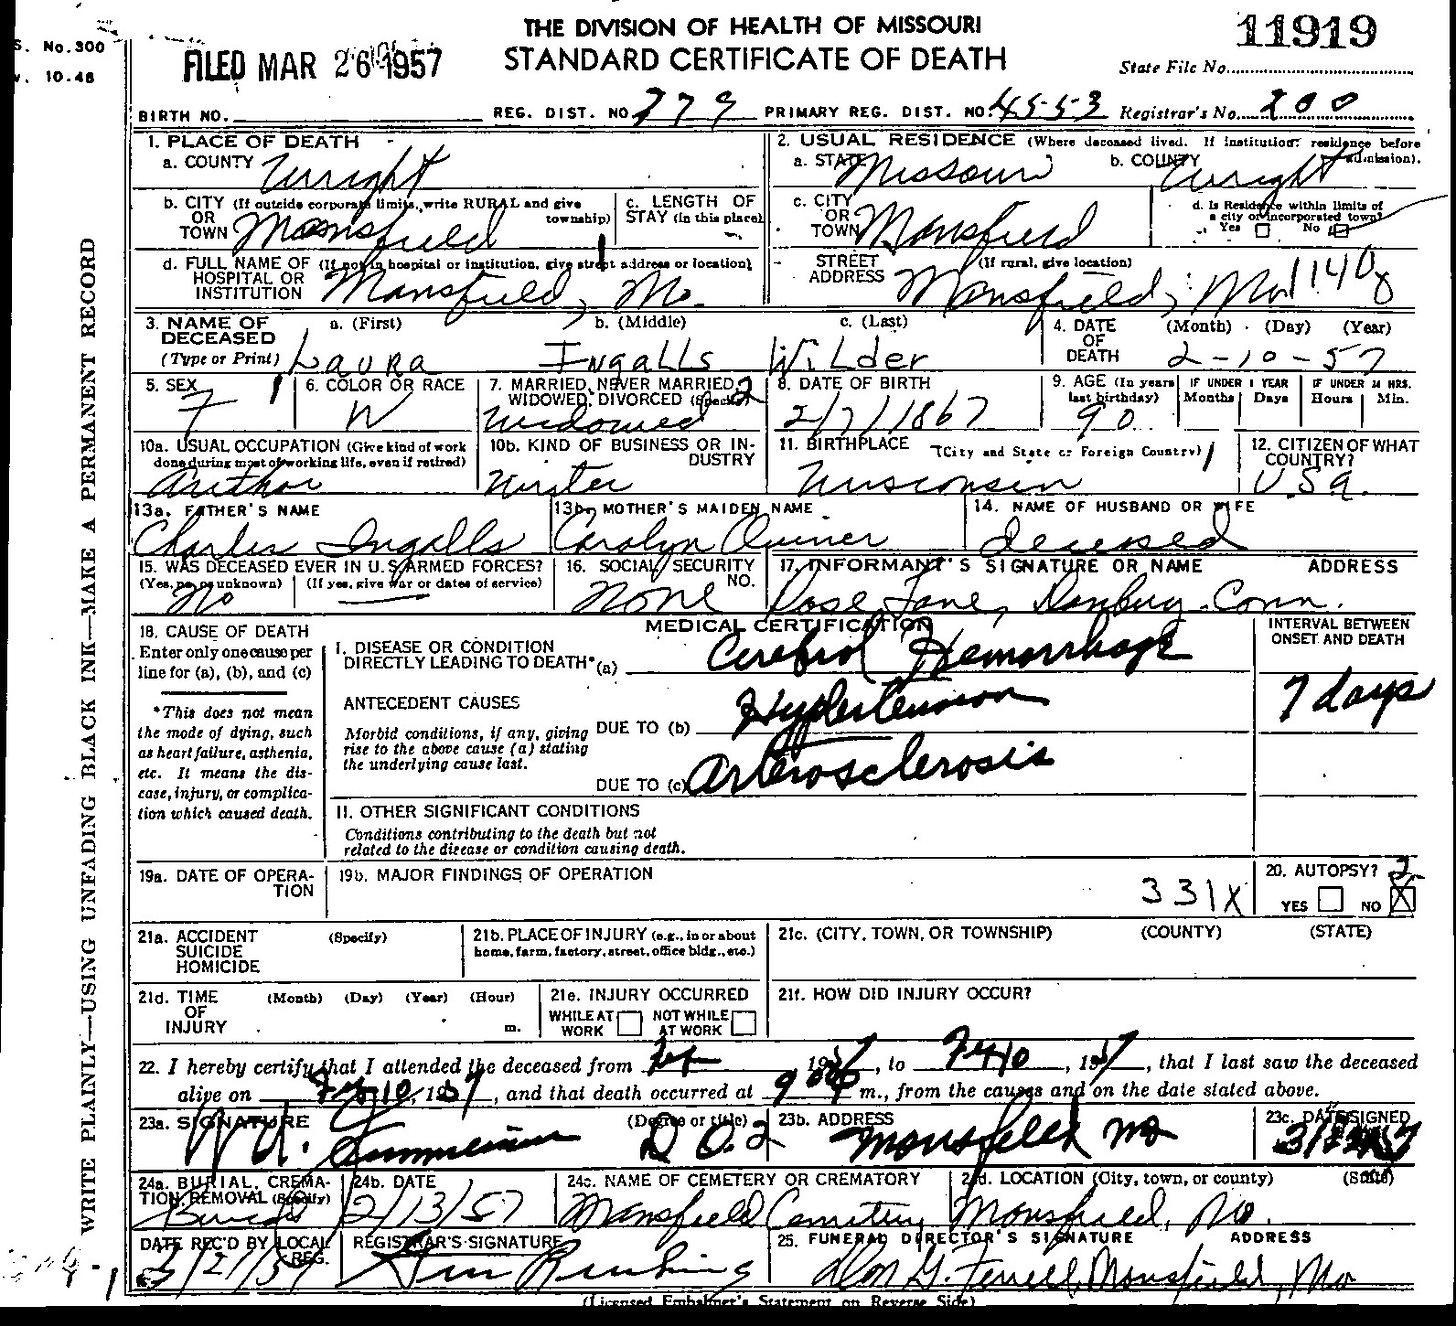 THE DIVISION OF HEALTH OF MISSOURI
STANDARD CERTIFICATE OF DEATH
11919
S. No. 300
v. 10.48
FILED MAR 26 1957
State File No.
BIRTH NO. REG. DIST. NO. 779 PRIMARY REG. DIST. NO. 4553 Registrar's No. 200
1. PLACE OF DEATH
a. COUNTY Wright
2. USUAL RESIDENCE (Where deceased lived. If institution: residence before admission).
a. STATE Missouri b. COUNTY Wright
b. CITY (If outside corporate limits, write RURAL and give township) OR TOWN Mansfield
c. LENGTH OF STAY (in this place)
c. CITY OR TOWN Mansfield
d. Is Residence within limits of a city or incorporated town? Yes No
d. FULL NAME OF (If not in hospital or institution, give street address or location) HOSPITAL OR INSTITUTION Mansfield, Mo.
STREET ADDRESS (If rural, give location) Mansfield, Mo. 1140
3. NAME OF DECEASED (Type or Print) a. (First) Laura b. (Middle) Ingalls c. (Last) Wilder
4. DATE OF DEATH (Month) (Day) (Year) 2-10-57
5. SEX F 1
6. COLOR OR RACE W
7. MARRIED, NEVER MARRIED, WIDOWED, DIVORCED (Specify) 2 Widowed
8. DATE OF BIRTH 2/7/1867
9. AGE (In years last birthday) 90 IF UNDER 1 YEAR Months Days IF UNDER 24 HRS. Hours Min.
10a. USUAL OCCUPATION (Give kind of work done during most of working life, even if retired) Author
10b. KIND OF BUSINESS OR INDUSTRY Writer
11. BIRTHPLACE (City and State or Foreign Country) Wisconsin
12. CITIZEN OF WHAT COUNTRY? U.S.a.
13a. FATHER'S NAME Charles Ingalls
13b. MOTHER'S MAIDEN NAME Carolyn Quiner
14. NAME OF HUSBAND OR WIFE deceased
15. WAS DECEASED EVER IN U.S. ARMED FORCES? (Yes, no, or unknown) (If yes, give war or dates of service) No
16. SOCIAL SECURITY NO. None
17. INFORMANT'S SIGNATURE OR NAME ADDRESS Rose Lane, Danbury. Conn.
18. CAUSE OF DEATH
Enter only one cause per line for (a), (b), and (c)
*This does not mean the mode of dying, such as heart failure, asthenia, etc. It means the disease, injury, or complication which caused death.
MEDICAL CERTIFICATION
INTERVAL BETWEEN ONSET AND DEATH
I. DISEASE OR CONDITION DIRECTLY LEADING TO DEATH* (a) Cerebral Hemorrhage
7 days
ANTECEDENT CAUSES
Morbid conditions, if any, giving rise to the above cause (a) stating the underlying cause last.
DUE TO (b) Hypertension
DUE TO (c) Arterosclerosis
II. OTHER SIGNIFICANT CONDITIONS
Conditions contributing to the death but not related to the disease or condition causing death.
19a. DATE OF OPERATION
19b. MAJOR FINDINGS OF OPERATION
331X
20. AUTOPSY? 2 YES NO X
21a. ACCIDENT SUICIDE HOMICIDE (Specify)
21b. PLACE OF INJURY (e.g., in or about home, farm, factory, street, office bldg., etc.)
21c. (CITY, TOWN, OR TOWNSHIP) (COUNTY) (STATE)
21d. TIME OF INJURY (Month) (Day) (Year) (Hour) m.
21e. INJURY OCCURRED WHILE AT WORK NOT WHILE AT WORK
21f. HOW DID INJURY OCCUR?
22. I hereby certify that I attended the deceased from 1957, to Feb 10, 1957, that I last saw the deceased
alive on Feb 10, 1957, and that death occurred at m., from the causes and on the date stated above.
23a. SIGNATURE (Degree or title) D.O. 2
23b. ADDRESS Mansfield Mo
23c. DATE SIGNED
24a. BURIAL, CREMATION, REMOVAL (Specify) Burial
24b. DATE 2/13/57
24c. NAME OF CEMETERY OR CREMATORY Mansfield Cemetery
24d. LOCATION (City, town, or county) (State) Mansfield, Mo.
DATE REC'D BY LOCAL REG. 3/21/57
REGISTRAR'S SIGNATURE
25. FUNERAL DIRECTOR'S SIGNATURE ADDRESS Mansfield, Mo
(Licensed Embalmer's Statement on Reverse Side)
WRITE PLAINLY—USING UNFADING BLACK INK—MAKE A PERMANENT RECORD